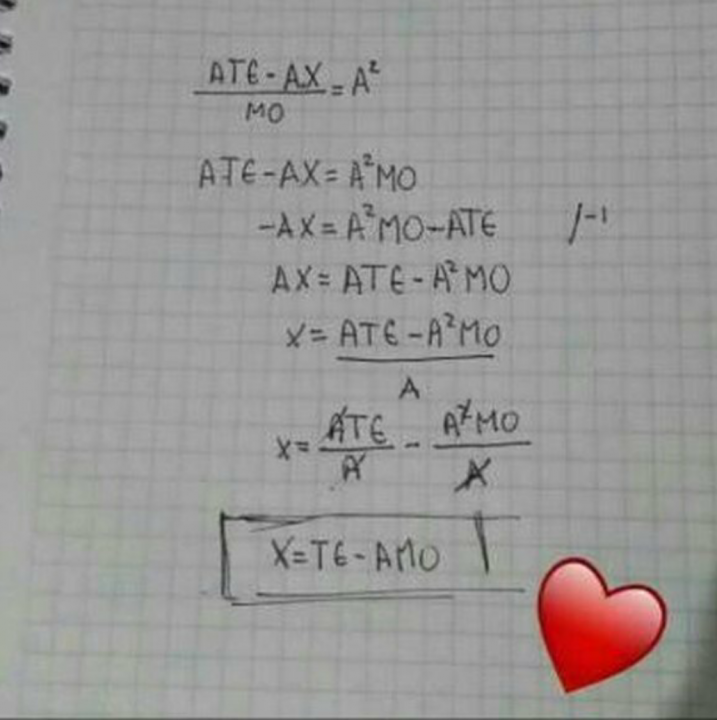 ATE-AX/MO = A²
ATE-AX = A²MO
-AX = A²MO-ATE /-1
AX = ATE-A²MO
X = ATE-A²MO/A
X = ATE/A - A²MO/A
X=TE-AMO